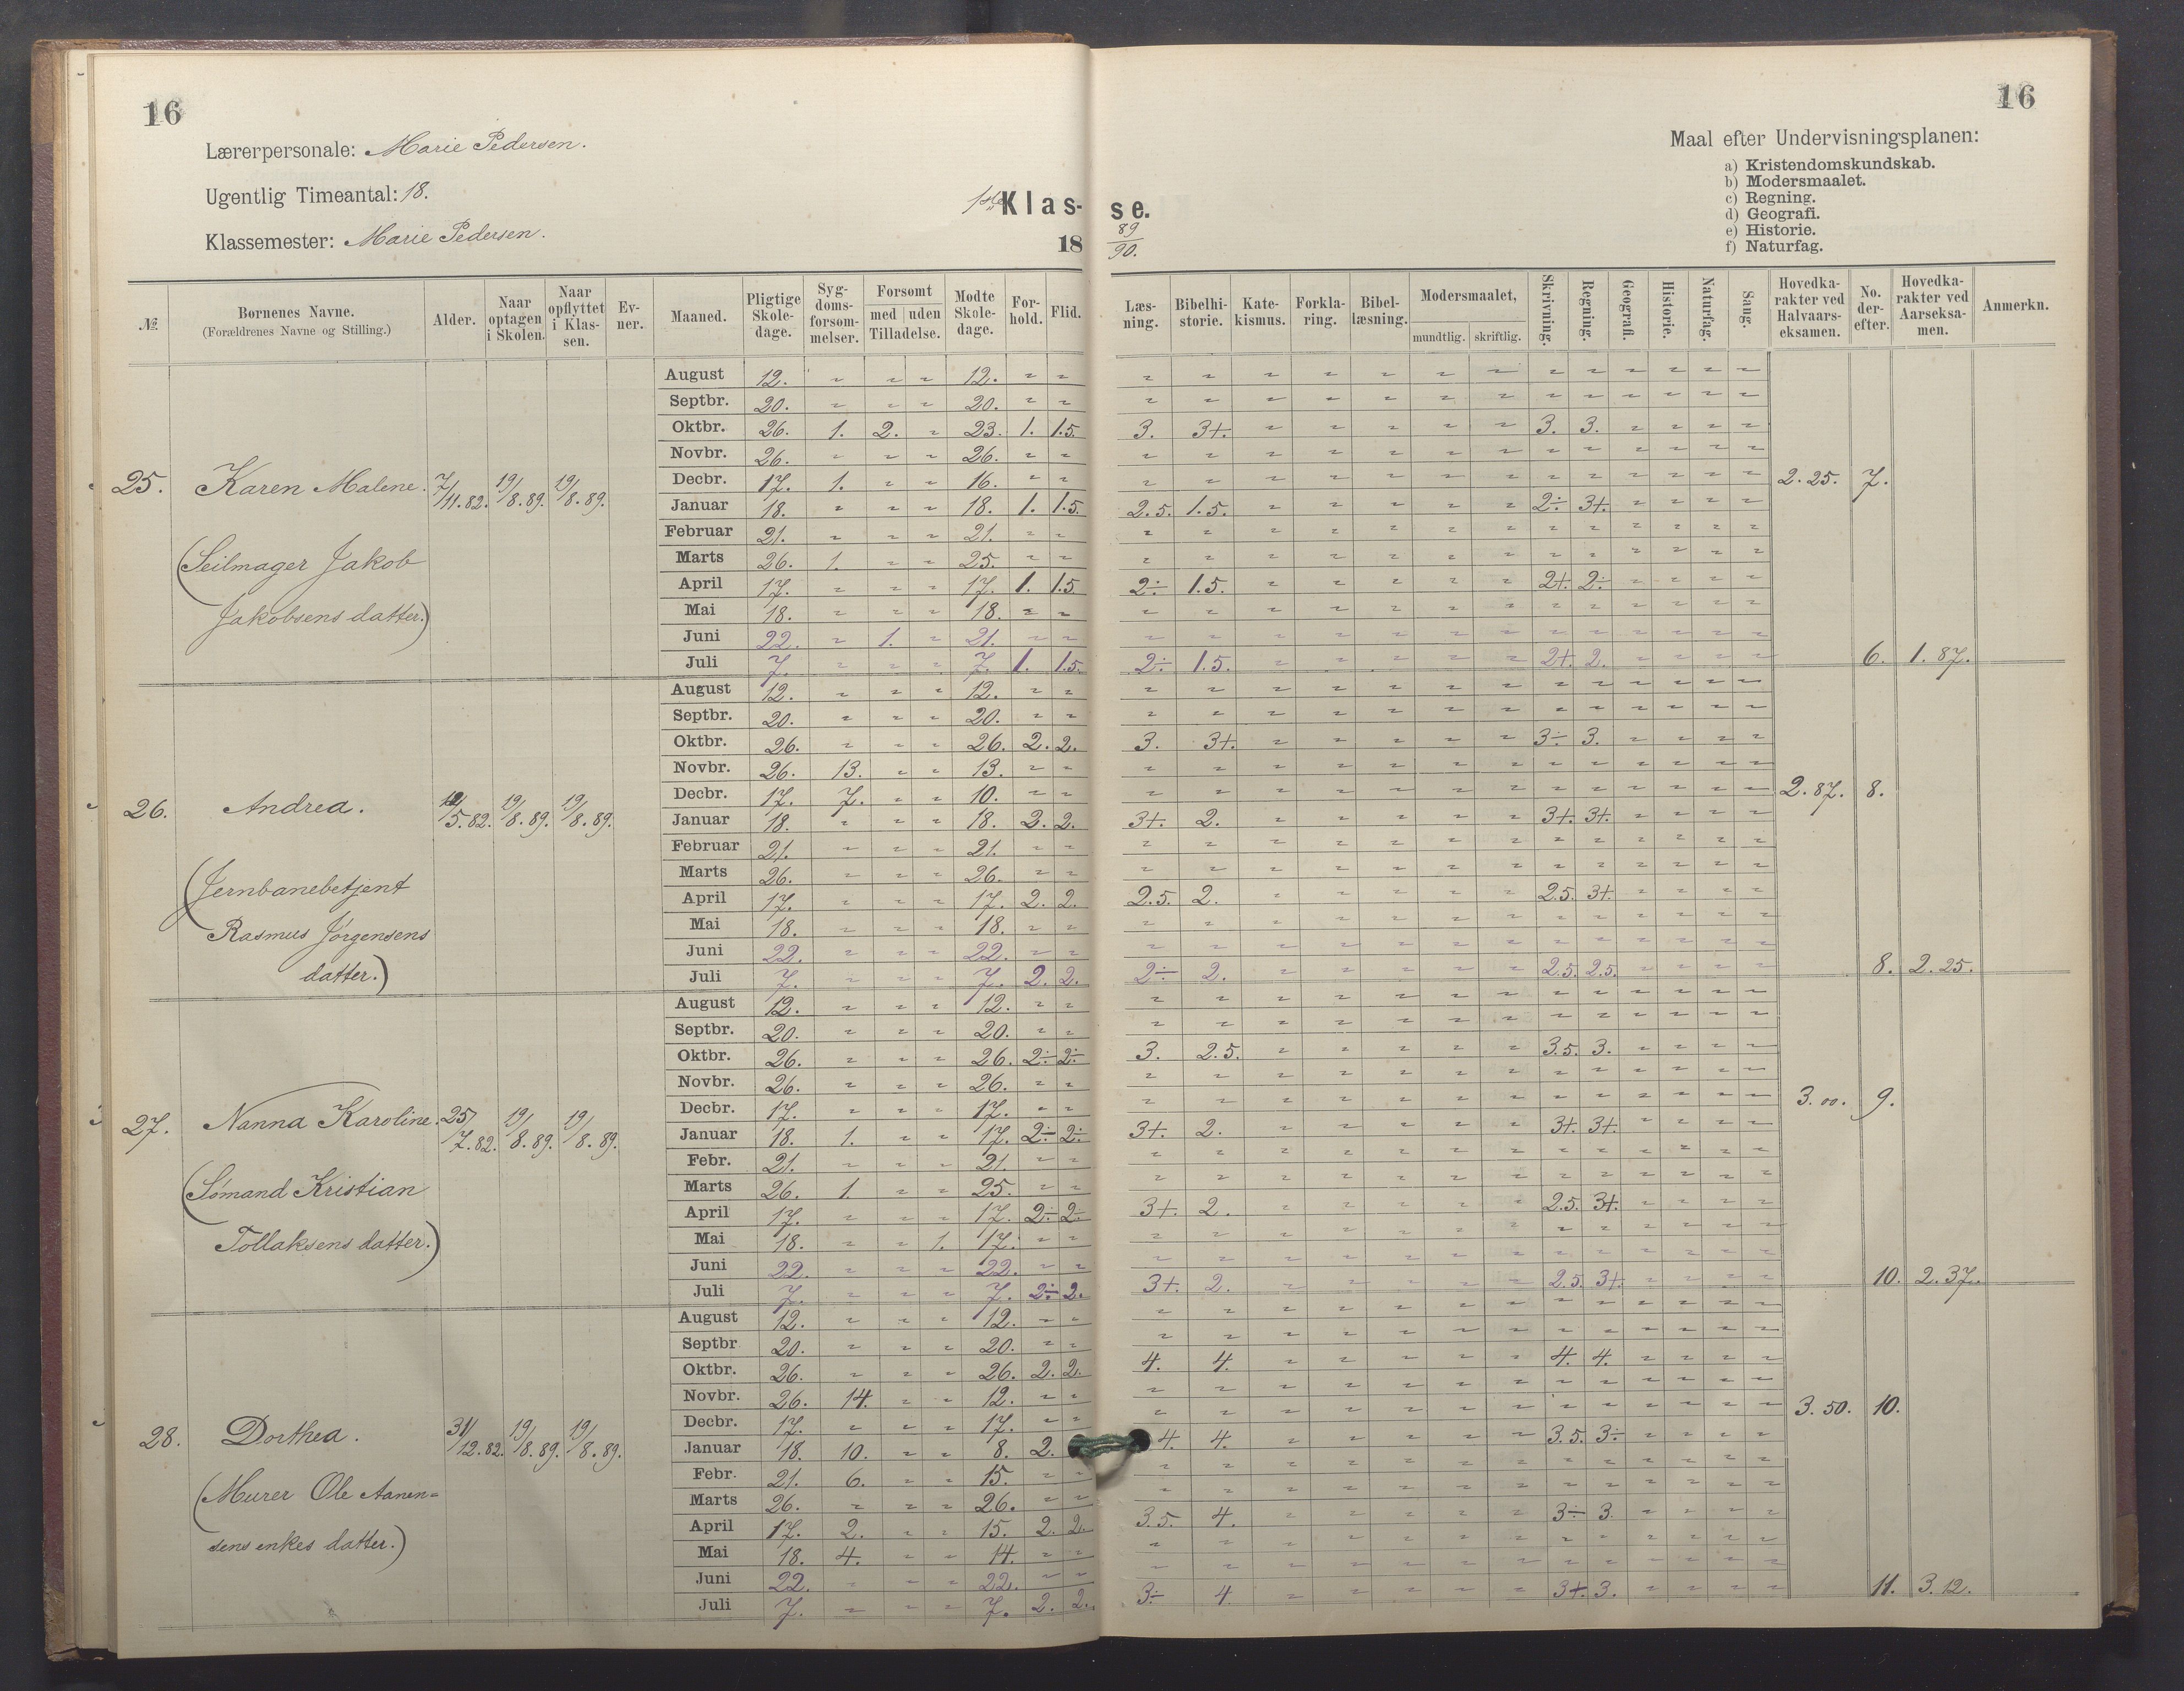 16
16
Lærerpersonale: Marie Pedersen.
Ugentlig Timeantal: 18.
Klassemester: Marie Pedersen.
1ste Klas- se.
18 89/90.
Maal efter Undervisningsplanen:
a) Kristendomskundskab.
b) Modersmaalet.
c) Regning.
d) Geografi.
e) Historie.
f) Naturfag.
№ Børnenes Navne. (Forældrenes Navne og Stilling.) Alder. Naar optagen i Skolen. Naar opflyttet i Klassen. Evner. Maaned. Pligtige Skoledage. Sygdomsforsommelser. Forsømt med uden Tilladelse. Mødte Skoledage. Forhold. Flid. Læsning. Bibelhistorie. Katekismus. Forklaring. Bibellæsning. Modersmaalet, mundtlig. skriftlig. Skrivning. Regning. Geografi. Historie. Naturfag. Sang. Hovedkarakter ved Halvaarseksamen. No. derefter. Hovedkarakter ved Aarseksamen. Anmerkn.
25. Karen Malene. 7/11.82. 19/8.89. 19/8.89.
(Seilmager Jakob
Jakobsens datter.)
August 12. " " " 12. " " " " " " " " " " " " " " "
Septbr. 20. " " " 20. " " " " " " " " " " " " " " "
Oktbr. 26. 1. 2. " 23. 1. 1.5. 3. 3+. " " " " " 3. 3. " " " "
Novbr. 26. " " " 26. " " " " " " " " " " " " " " "
Decbr. 17. 1. " " 16. " " " " " " " " " " " " " " " 2.25. 7.
Januar 18. " " " 18. 1. 1.5. 2.5. 1.5. " " " " " 2÷ 3+. " " " "
Februar 21. " " " 21. " " " " " " " " " " " " " " "
Marts 26. 1. " " 25. " " " " " " " " " " " " " " "
April 17. " " " 17. 1. 1.5 2÷ 1.5. " " " " " 2+. 2÷ " " " "
Mai 18. " " " 18. " " " " " " " " " " " " " " "
Juni 22. " 1. " 21. " " " " " " " " " " " " " " "
Juli 7. " " " 7. 1. 1.5. 2÷ 1.5. " " " " " 2+. 2. " " " " 6. 1.87.
26. Andrea. /5.82. 19/8.89. 19/8.89.
(Jernbanebetjent
Rasmus Jørgensens
datter.)
August 12. " " " 12. " " " " " " " " " " " " " " "
Septbr. 20. " " " 20. " " " " " " " " " " " " " " "
Oktbr. 26. " " " 26. 2. 2. 3. 3+. " " " " " 3÷ 3. " " " "
Novbr. 26. 13. " " 13. " " " " " " " " " " " " " " "
Decbr. 17. 7. " " 10. " " " " " " " " " " " " " " " 2.87. 8.
Januar 18. " " " 18. 2. 2. 3+. 2. " " " " " 3+. 3+. " " " "
Februar 21. " " " 21. " " " " " " " " " " " " " " "
Marts 26. " " " 26. " " " " " " " " " " " " " " "
April 17. " " " 17. 2. 2. 2.5. 2. " " " " " 2.5. 3+. " " " "
Mai 18. " " " 18. " " " " " " " " " " " " " " "
Juni 22. " " " 22. " " " " " " " " " " " " " " "
Juli 7. " " " 7. 2. 2. 2÷ 2. " " " " " 2.5. 2.5. " " " " 8. 2.25.
27. Nanna Karoline. 25/7.82. 19/8.89. 19/8.89.
(Sømand Kristian
Tollaksens datter.)
August 12. " " " 12. " " " " " " " " " " " " " " "
Septbr. 20. " " " 20. " " " " " " " " " " " " " " "
Oktbr. 26. " " " 26. 2÷ 2÷ 3. 2.5. " " " " " 3.5. 3. " " " "
Novbr. 26. " " " 26. " " " " " " " " " " " " " " "
Decbr. 17. " " " 17. " " " " " " " " " " " " " " " 3.00. 9.
Januar 18. 1. " " 17. 2÷ 2÷ 3+. 2. " " " " " 3+. 3+. " " " "
Febr. 21. " " " 21. " " " " " " " " " " " " " " "
Marts 26. 1. " " 25. " " " " " " " " " " " " " " "
April 17. " " " 17. 2÷ 2÷ 3+. 2. " " " " " 2.5. 3+. " " " "
Mai 18. " " 1. 17. " " " " " " " " " " " " " " "
Juni 22. " " " 22. " " " " " " " " " " " " " " "
Juli 7. " " " 7. 2÷ 2. 3+. 2. " " " " " 2.5. 3+. " " " " 10. 2.37.
28. Dorthea. 31/12.82. 19/8.89. 19/8.89.
(Murer Ole Aanen=
sens enkes datter.)
August 12. " " " 12. " " " " " " " " " " " " " " "
Septbr 20. " " " 20. " " " " " " " " " " " " " " "
Oktbr. 26. " " " 26. 2. 2. 4. 4. " " " " " 4. 4. " " " "
Novbr. 26. 14. " " 12. " " " " " " " " " " " " " " "
Decbr. 17. " " " 17. " " " " " " " " " " " " " " " 3.50. 10.
Januar 18. 10. " " 8. 2. 4. 4. " " " " " 3.5. 3÷ " " " "
Febr. 21. 6. " " 15. " " " " " " " " " " " " " " "
Marts 26. " " " 26. " " " " " " " " " " " " " " "
April 17. 2. " " 15. 2. 2. 3.5. 4. " " " " " 3÷ 3. " " " "
Mai 18. 4. " " 14. " " " " " " " " " " " " " " "
Juni 22. " " " 22. " " " " " " " " " " " " " " "
Juli 7. " " " 7. 2. 2. 3÷ 4. " " " " " 3+. 3. " " " " 11. 3.12.